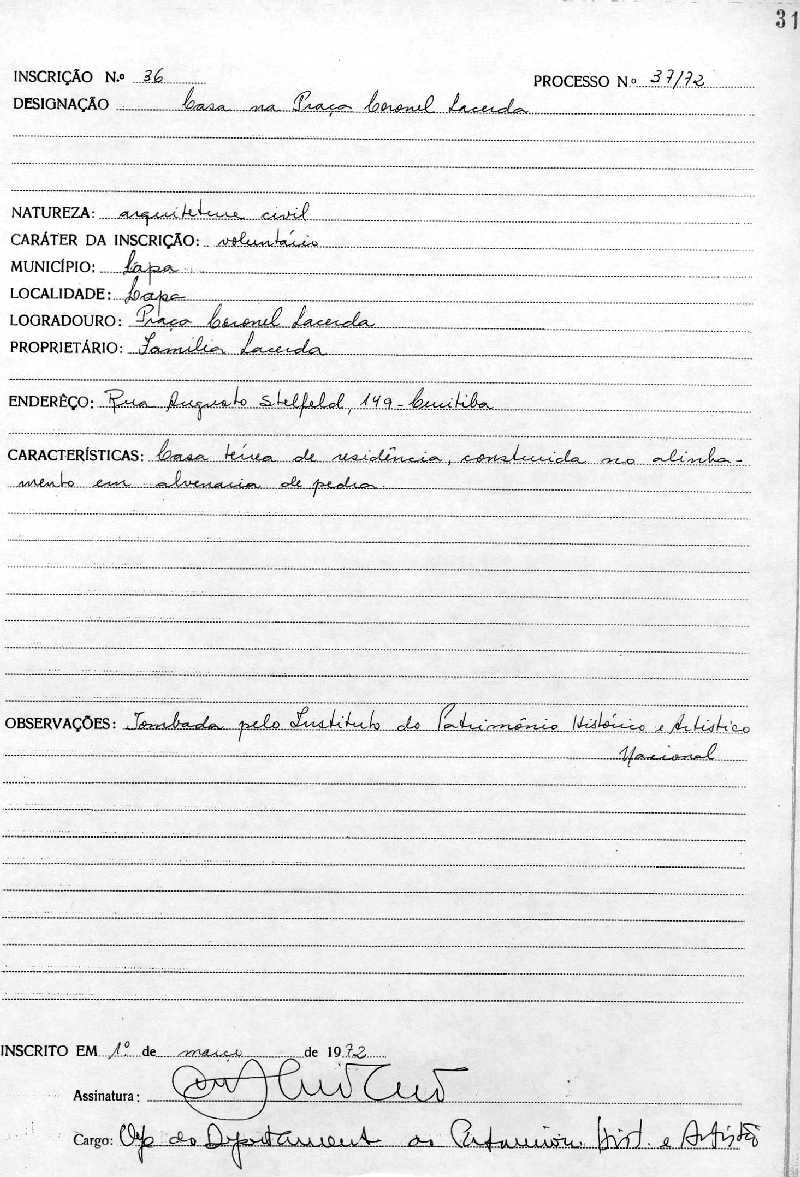 31
INSCRIÇÃO N.º 36 PROCESSO Nº 37/72
DESIGNAÇÃO Casa na Praça Coronel Lacerda
NATUREZA: arquitetura civil
CARÁTER DA INSCRIÇÃO: voluntário
MUNICÍPIO: Lapa
LOCALIDADE: Lapa
LOGRADOURO: Praça Coronel Lacerda
PROPRIETÁRIO: Família Lacerda
ENDERÊÇO: Rua Augusto Stelfeld, 149 - Curitiba
CARACTERÍSTICAS: Casa térrea de residência, construida no alinha-
mento em alvenaria de pedra.
OBSERVAÇÕES: Tombada pelo Instituto do Patrimônio Histórico e Artistico
Nacional
INSCRITO EM 1º de março de 1972
Assinatura:
Cargo: do Departamento do Patrimôn. Hist. e Artístico